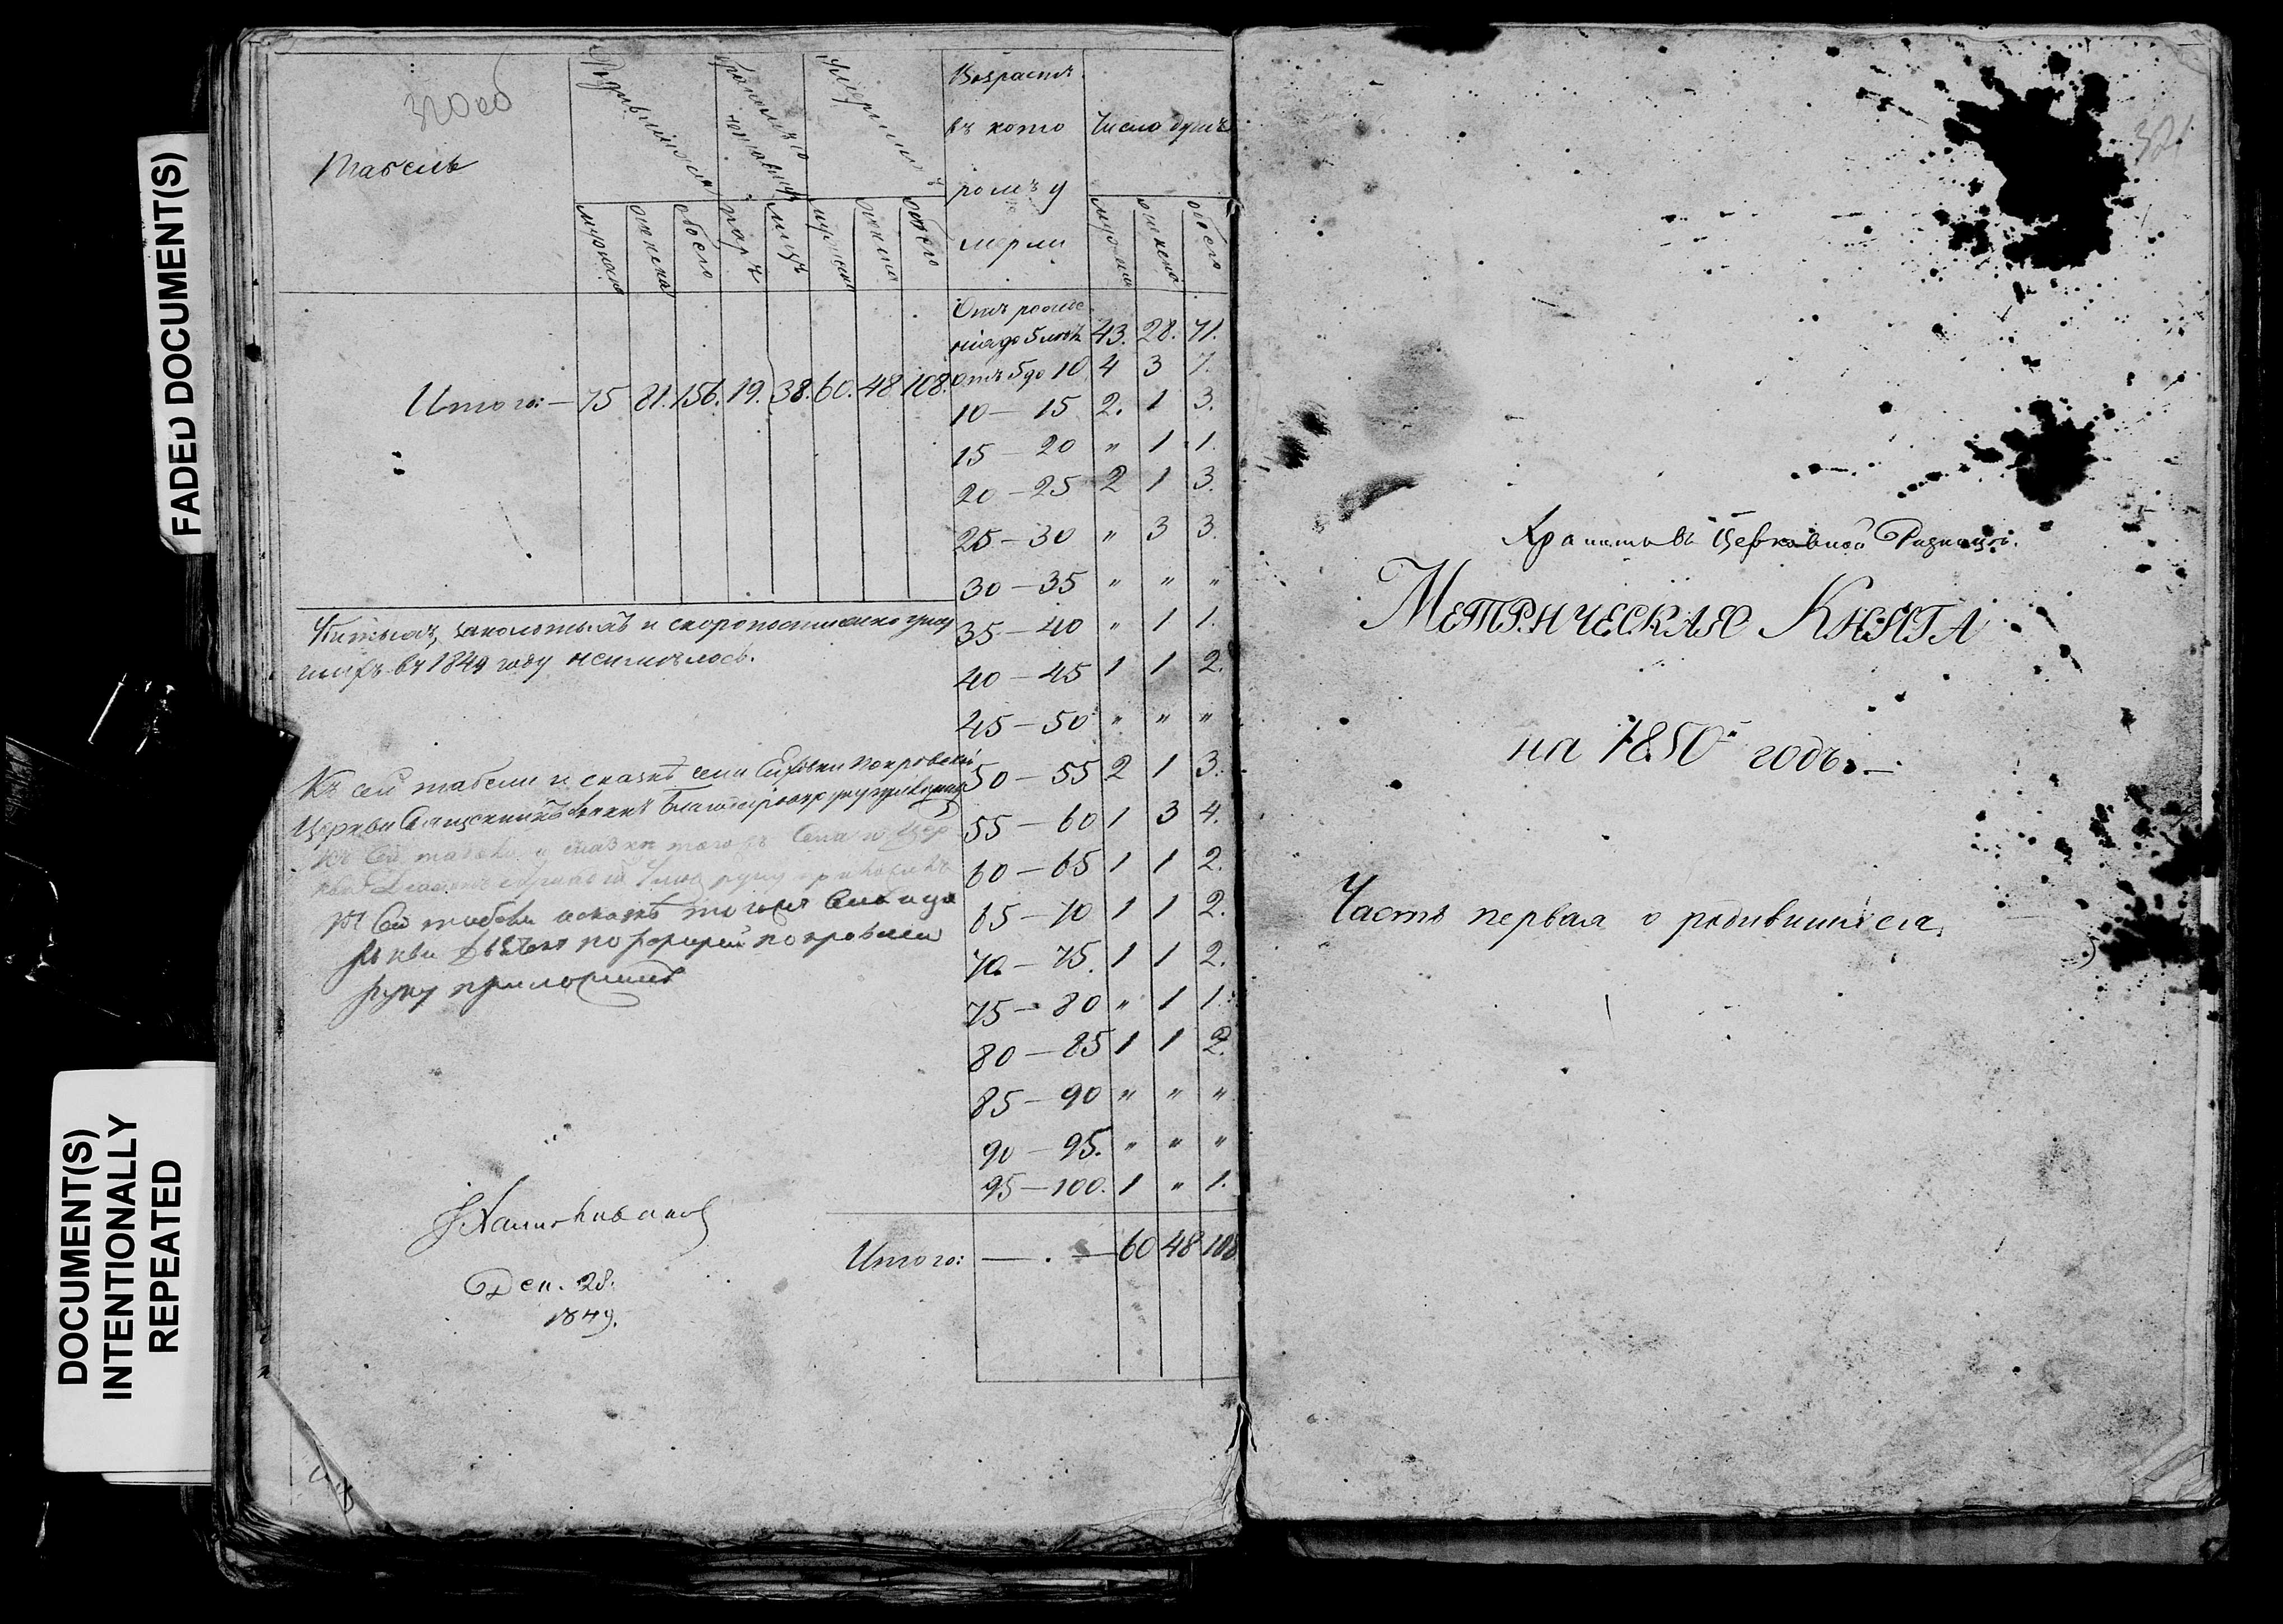 FADED DOCUMENT(S)
DOCUMENT(S)
INTENTIONALLY
REPEATED
320об
Табель
Родившихся
Бракомъ со
четавшихся
Умершихъ
Возрастъ
въ кото
ромъ у
мерли
Число душъ
мужеска
женска
обоего
паръ
лицъ
мужеска
женска
обоего
мужеска
женска
обоего
Итого: — 75 81. 156. 19. 38. 60. 48 108.
Отъ рожде
нія до 5 лѣтъ 43. 28. 71.
Отъ 5 до 10 4 3 7.
10 — 15 2. 1 3.
15 — 20 " 1 1.
20 — 25 2 1 3.
25 — 30 " 3 3.
30 — 35 " " "
35 — 40 " 1 1.
40 — 45 1 1 2.
45 — 50 " " "
50 — 55 2 1 3.
55 — 60 1 3 4.
60 — 65 1 1 2.
65 — 70 1 1 2.
70 — 75. 1 1 2.
75 — 80 " 1 1.
80 — 85 1 1 2.
85 — 90 " " "
90 — 95. " " "
95 — 100. 1 " 1.
Итого: — . — 60 48 108
и скоропостижно умер
шихъ въ 1849 году неимѣлось.
Къ сей табели и сказкѣ села Покровской
Церкви Священникъ руку приложилъ
Къ сей табели и сказкѣ тогожъ Села и Цер
руку приложилъ
Къ сей табели
руку приложилъ
Дек. 28.
1849.
321
Хранить въ Церковной Ризницѣ.
Метрическая Книга
на 1850й годъ. —
Часть первая о родившихся.